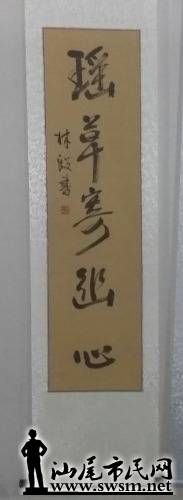 瑶草寄幽心
林毅書
汕尾市民网
www.swsm.net